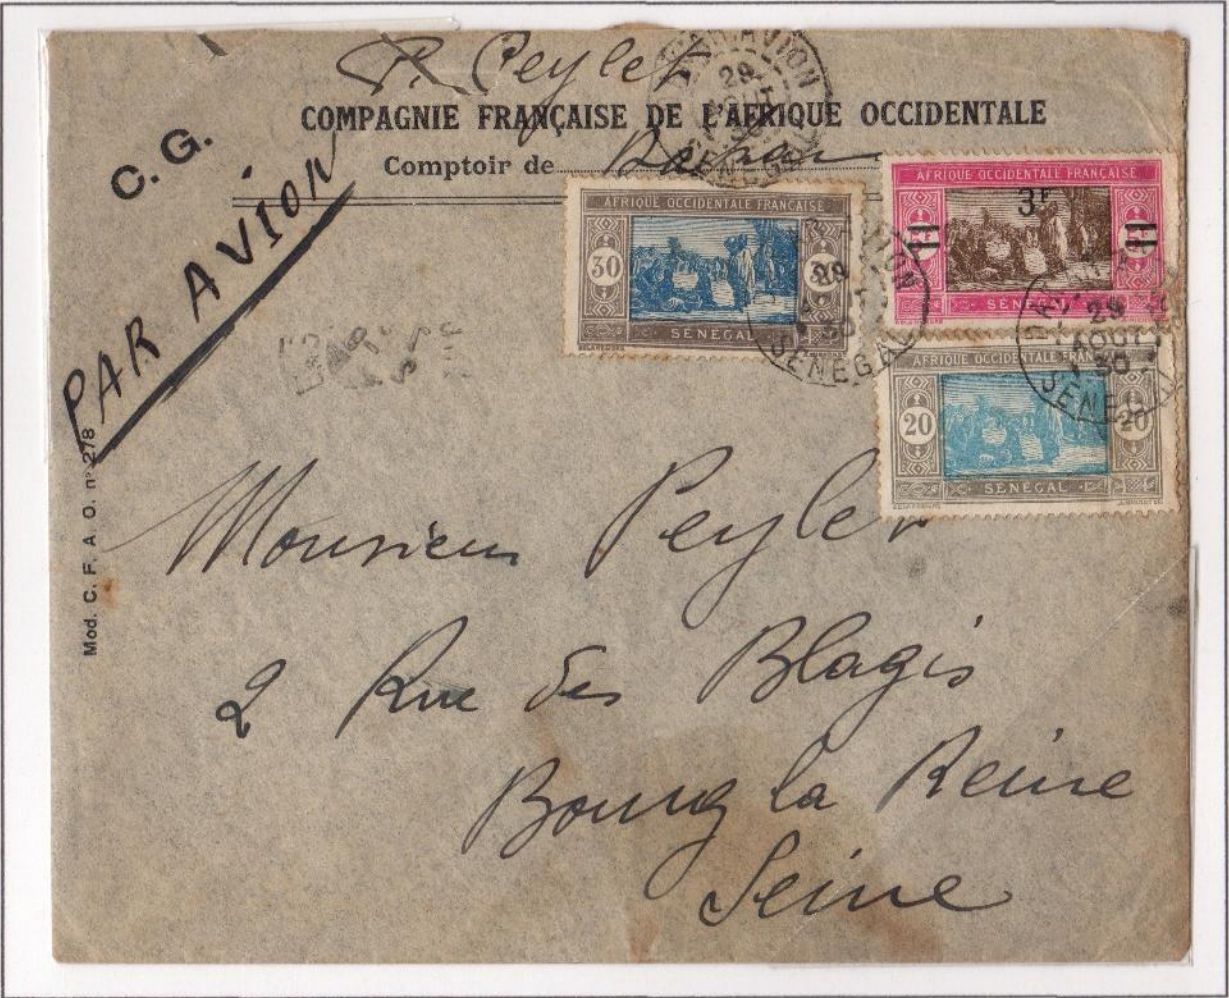 P. Peylet
COMPAGNIE FRANÇAISE DE L'AFRIQUE OCCIDENTALE
C. G.
Comptoir de Dakar
PAR AVION
Mod. C. F. A. O. n° 278
AFRIQUE OCCIDENTALE FRANÇAISE
30 30
SENEGAL
AFRIQUE OCCIDENTALE FRANÇAISE
3F
SENEGAL
AFRIQUE OCCIDENTALE FRAN
20 20
SENEGAL
PAR AVION
29
SENEGAL
AVION
29
30
SENEGAL
PAR
29
AOUT
30
SENEGAL
Monsieur Peylet
2 Rue des Blagis
Bourg la Reine
Seine